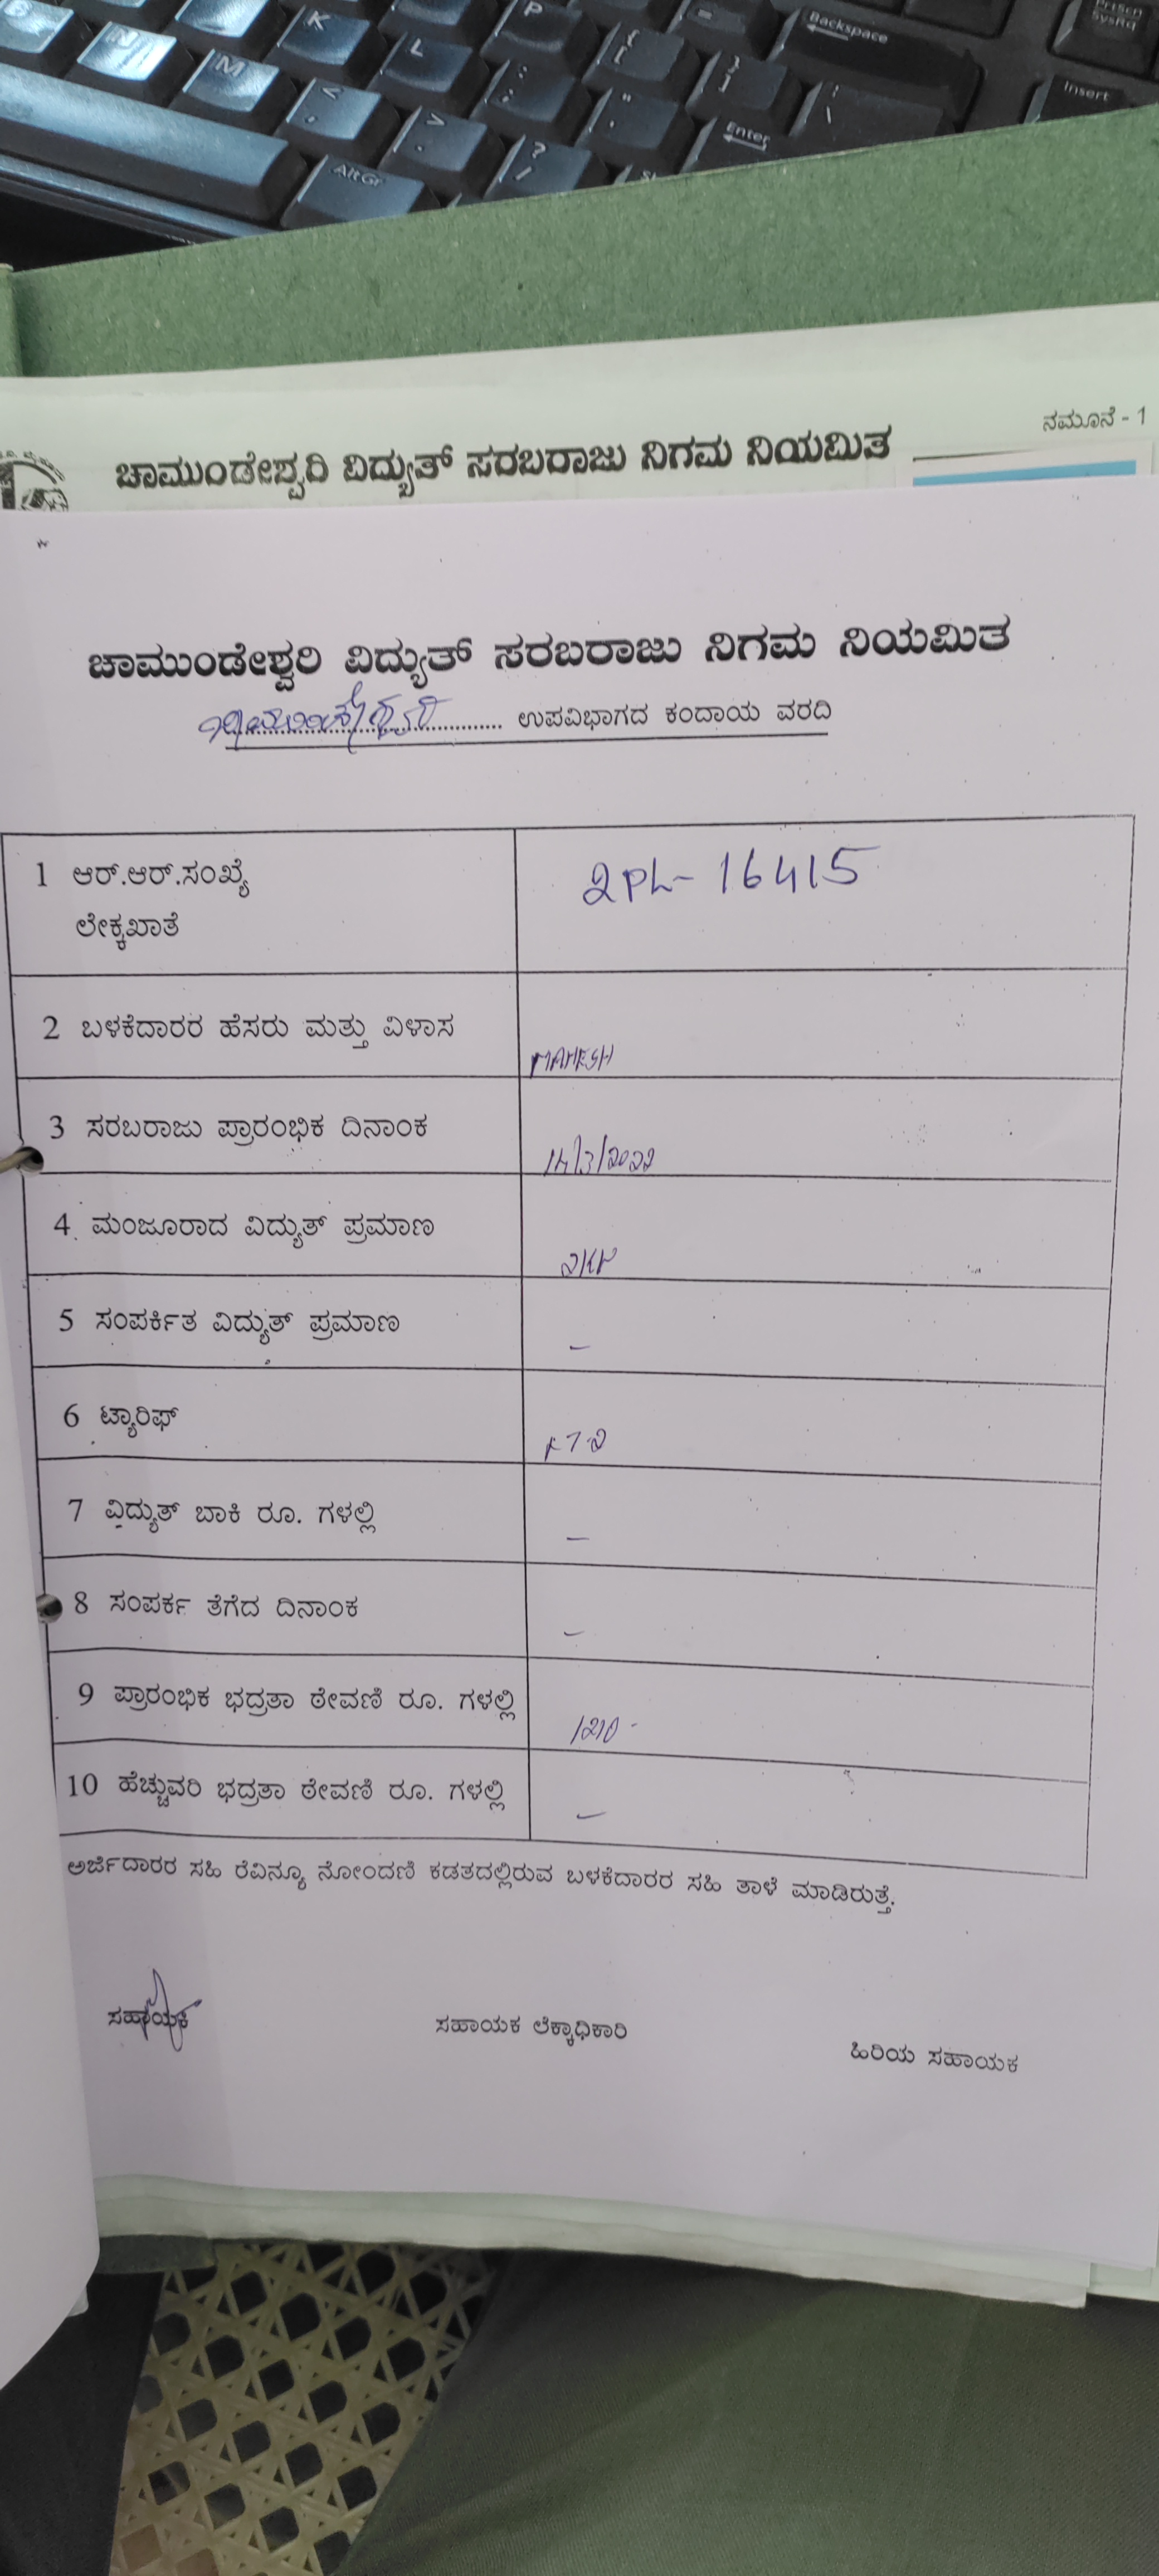 P
K
L
M
N
Backspace
PrtScn
SysRq
Insert
Enter
AltGr
ನಮೂನೆ - 1
ಚಾಮುಂಡೇಶ್ವರಿ ವಿದ್ಯುತ್ ಸರಬರಾಜು ನಿಗಮ ನಿಯಮಿತ
ಚಾಮುಂಡೇಶ್ವರಿ ವಿದ್ಯುತ್ ಸರಬರಾಜು ನಿಗಮ ನಿಯಮಿತ
ಉಪವಿಭಾಗದ ಕಂದಾಯ ವರದಿ
1 ಆರ್.ಆರ್.ಸಂಖ್ಯೆ 2PL- 16415
ಲೇಕ್ಕಖಾತೆ
2 ಬಳಕೆದಾರರ ಹೆಸರು ಮತ್ತು ವಿಳಾಸ MAHESH
3 ಸರಬರಾಜು ಪ್ರಾರಂಭಿಕ ದಿನಾಂಕ
4. ಮಂಜೂರಾದ ವಿದ್ಯುತ್ ಪ್ರಮಾಣ
5 ಸಂಪರ್ಕಿತ ವಿದ್ಯುತ್ ಪ್ರಮಾಣ –
6 ಟ್ಯಾರಿಫ್
7 ವಿದ್ಯುತ್ ಬಾಕಿ ರೂ. ಗಳಲ್ಲಿ –
8 ಸಂಪರ್ಕ ತೆಗೆದ ದಿನಾಂಕ –
9 ಪ್ರಾರಂಭಿಕ ಭದ್ರತಾ ಠೇವಣಿ ರೂ. ಗಳಲ್ಲಿ 1210 -
10 ಹೆಚ್ಚುವರಿ ಭದ್ರತಾ ಠೇವಣಿ ರೂ. ಗಳಲ್ಲಿ –
ಅರ್ಜಿದಾರರ ಸಹಿ ರೆವಿನ್ಯೂ ನೋಂದಣಿ ಕಡತದಲ್ಲಿರುವ ಬಳಕೆದಾರರ ಸಹಿ ತಾಳೆ ಮಾಡಿರುತ್ತೆ.
ಸಹಾಯಕ ಸಹಾಯಕ ಲೆಕ್ಕಾಧಿಕಾರಿ ಹಿರಿಯ ಸಹಾಯಕ